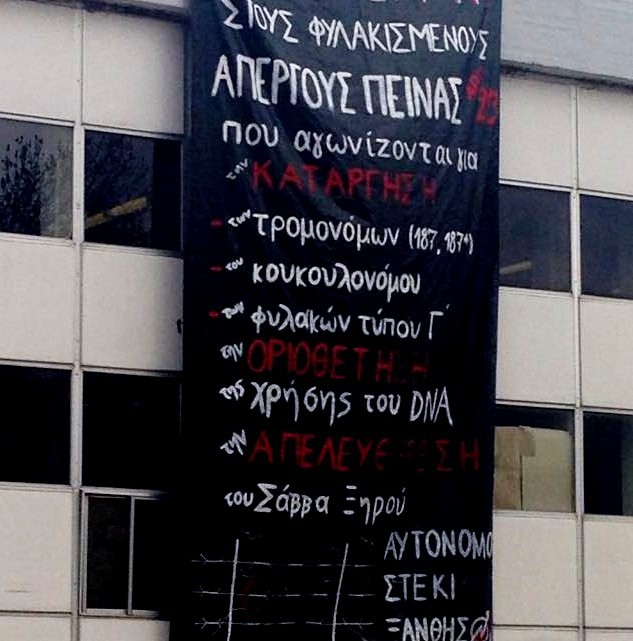 ΣΤΟΥΣ ΦΥΛΑΚΙΣΜΕΝΟΥΣ
ΑΠΕΡΓΟΥΣ ΠΕΙΝΑΣ
που αγωνίζονται για
την ΚΑΤΑΡΓΗΣΗ
- των τρομονόμων (187, 187Α)
- του κουκουλονόμου
- των φυλακών τύπου Γ΄
την ΟΡΙΟΘΕΤΗΣΗ
της χρήσης του DNA
την ΑΠΕΛΕΥΘΕΡΩΣΗ
του Σάββα Ξηρού
ΑΥΤΟΝΟΜΟ
ΣΤΕΚΙ
ΞΑΝΘΗΣ